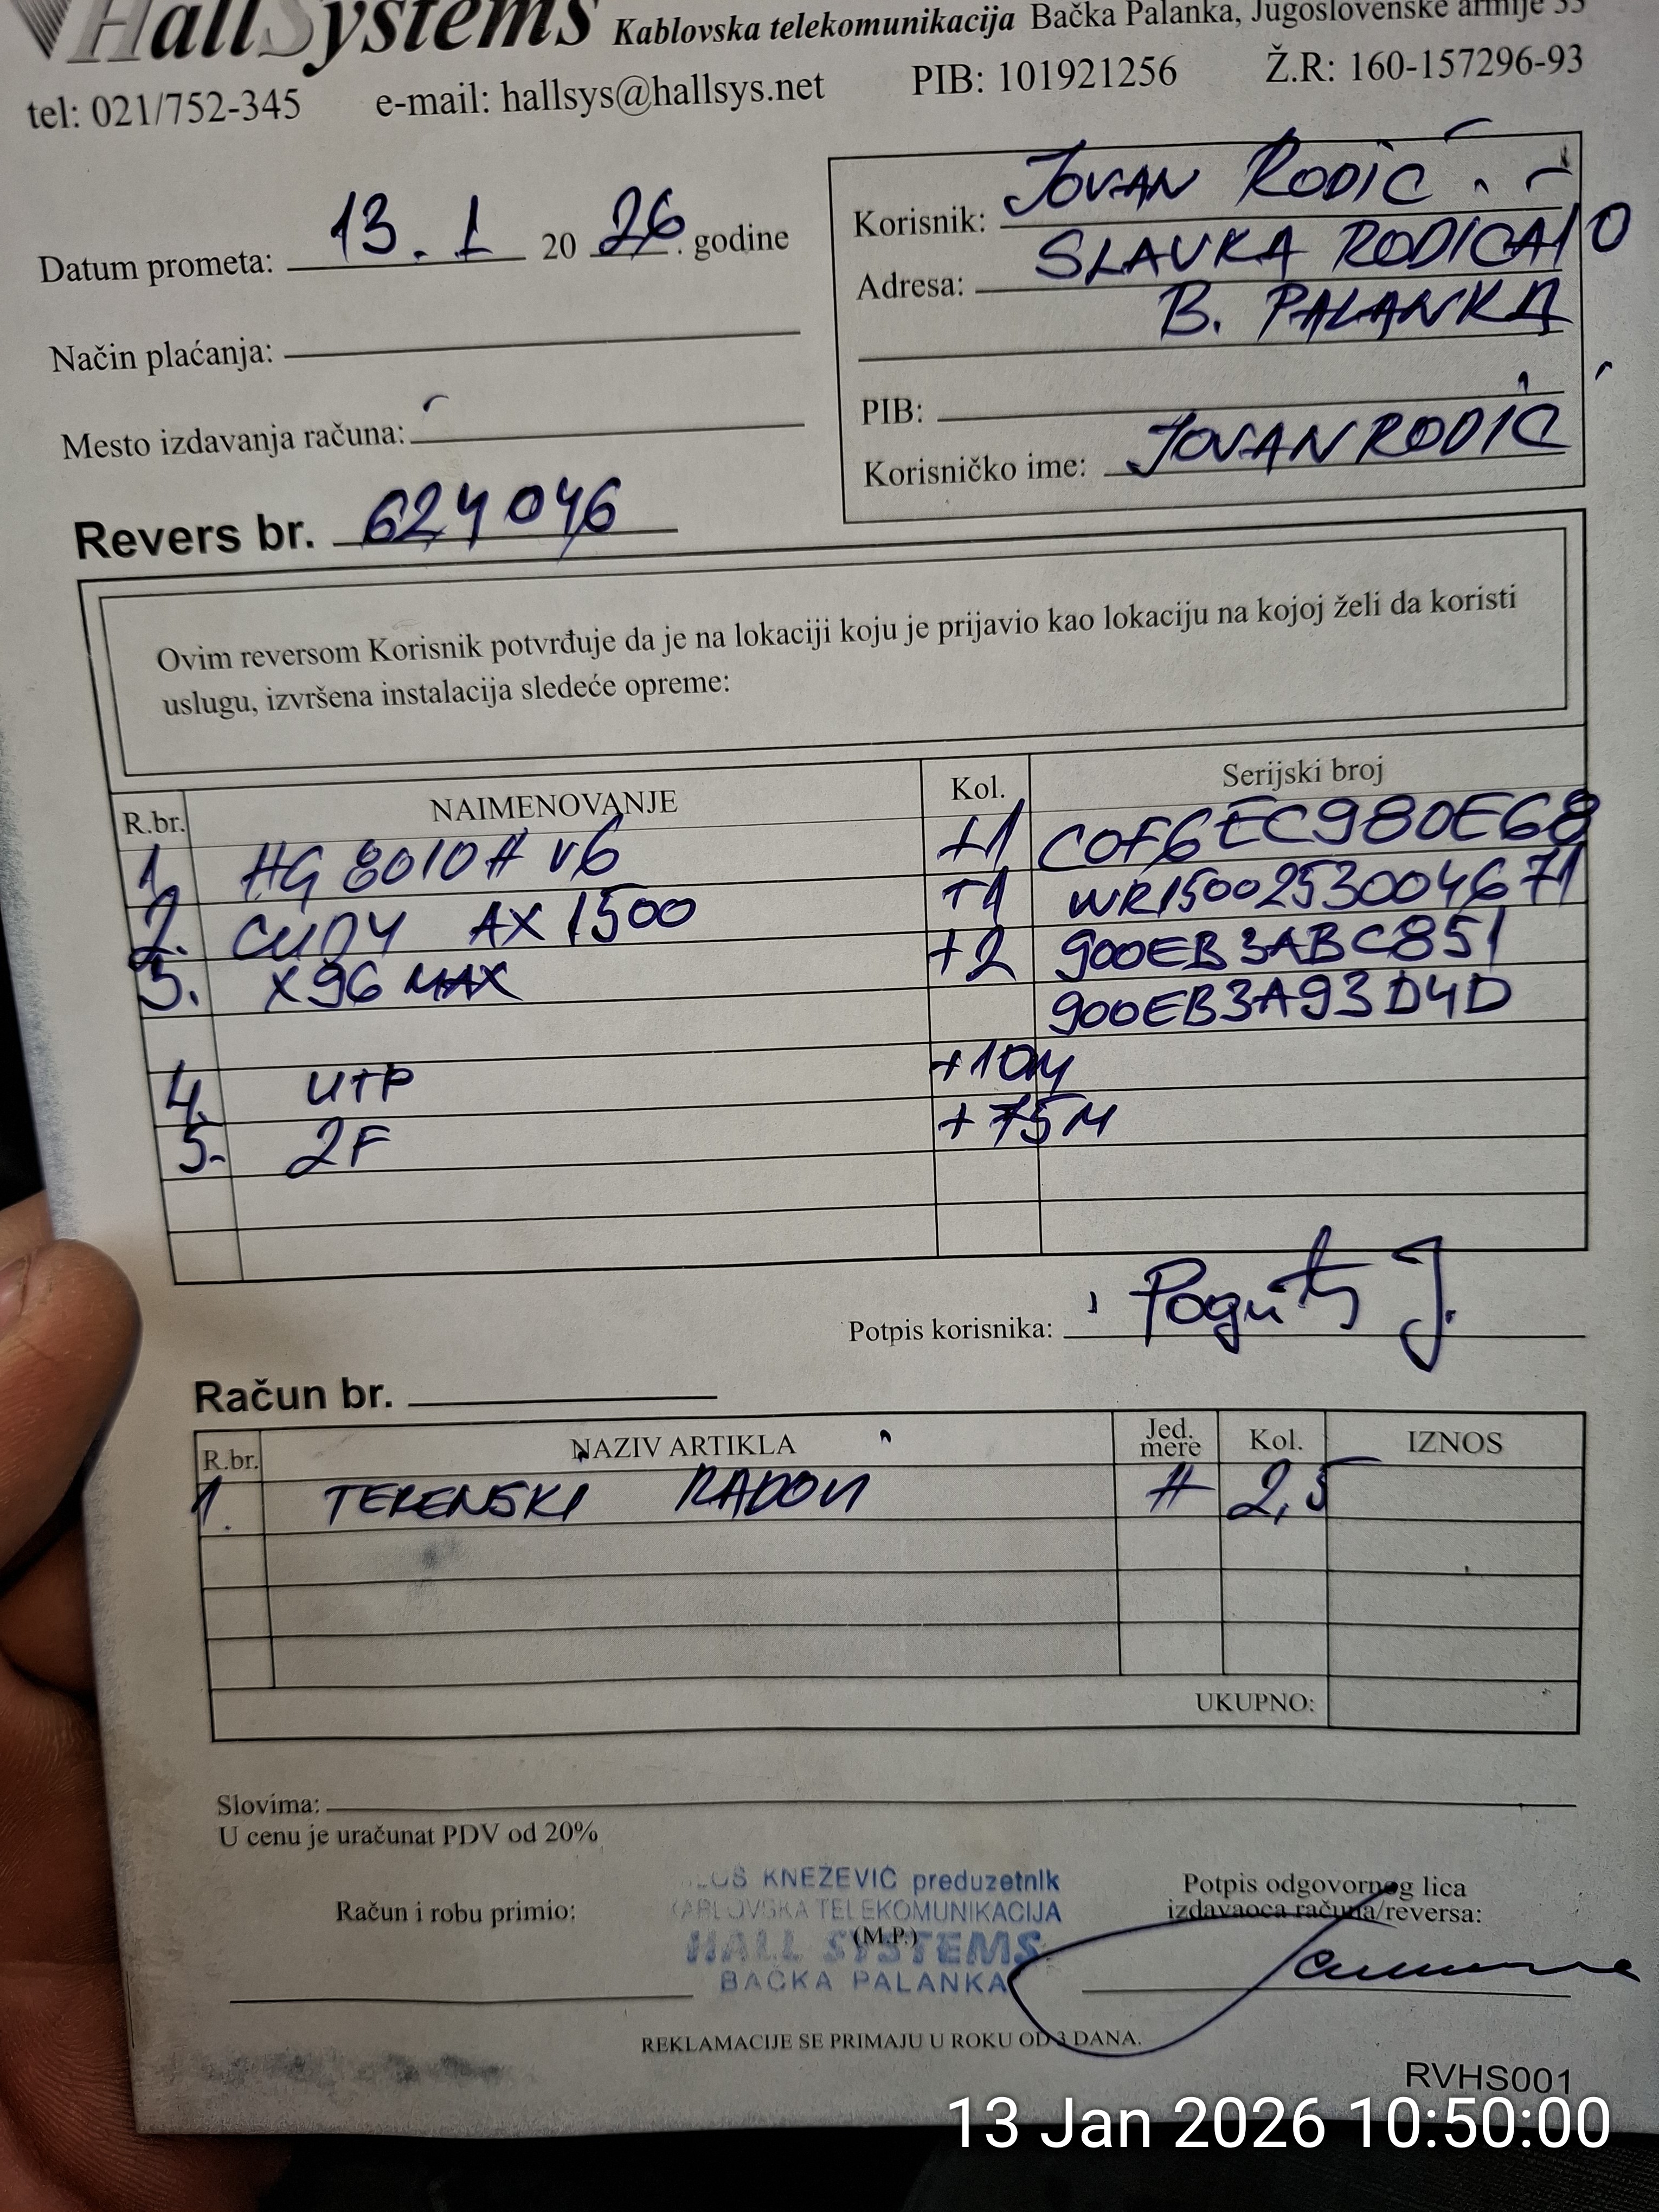 HallSystems Kablovska telekomunikacija Bačka Palanka, Jugoslovenske armije 33
tel: 021/752-345 e-mail: hallsys@hallsys.net PIB: 101921256 Ž.R: 160-157296-93
Datum prometa: 13. 1 20 26. godine
Način plaćanja:
Mesto izdavanja računa:
Korisnik: JOVAN RODIĆ
Adresa: SLAVKA RODIĆA 10
B. PALANKA
PIB:
Korisničko ime: JOVANRODIĆ
Revers br. 624046
Ovim reversom Korisnik potvrđuje da je na lokaciji koju je prijavio kao lokaciju na kojoj želi da koristi
uslugu, izvršena instalacija sledeće opreme:
R.br. NAIMENOVANJE Kol. Serijski broj
1. HG 8010H v6 +1 C0F6EC980E68
2. CUDY AX 1500 +1 WR1500253004671
3. X96 MAX +2 900EB3ABC851
900EB3A93D4D
4. UTP +10M
5. 2F +75M
Potpis korisnika:
Račun br.
R.br. NAZIV ARTIKLA Jed. mere Kol. IZNOS
1. TERENSKI RADOVI H 2,5
UKUPNO:
Slovima:
U cenu je uračunat PDV od 20%
Račun i robu primio:
KNEŽEVIĆ preduzetnik
KABLOVSKA TELEKOMUNIKACIJA
(M.P.)
HALL SYSTEMS
BAČKA PALANKA
Potpis odgovornog lica
izdavaoca računa/reversa:
REKLAMACIJE SE PRIMAJU U ROKU OD 3 DANA.
RVHS001
13 Jan 2026 10:50:00